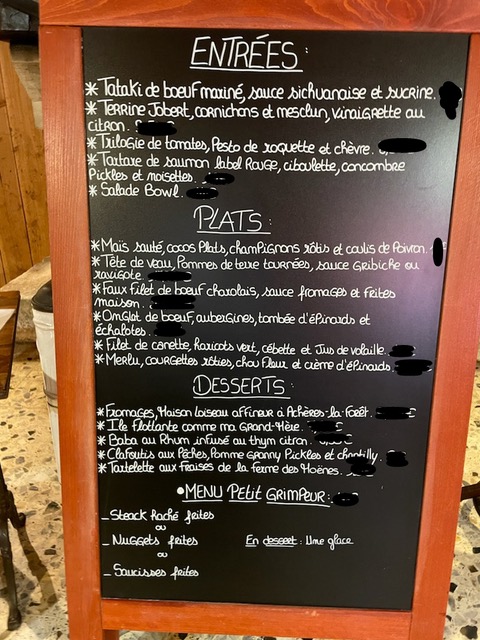 ENTRÉES :
* Tataki de bœuf mariné, sauce sichuanaise et sucrine.
* Terrine Jobert, cornichons et mesclun, vinaigrette au
citron.
* Trilogie de tomates, Pesto de roquette et chèvre.
* Tartare de saumon label Rouge, ciboulette, concombre
Pickles et noisettes.
* Salade Bowl.
PLATS :
* Maïs sauté, cocos Plats, champignons rôtis et coulis de Poivron.
* Tête de veau, Pommes de terre tournées, sauce Gribiche ou
ravigote.
* Faux filet de bœuf charolais, sauce fromages et frites
maison.
* Onglet de bœuf, aubergines, tombée d'épinards et
échalotes.
* Filet de canette, haricots vert, cébette et Jus de volaille.
* Merlu, courgettes rôties, chou fleur et crème d'épinards.
DESSERTS :
* Fromages, Maison Loiseau affineur à Achères-la-Forêt.
* Ile Flottante comme ma Grand-Mère.
* Baba au Rhum infusé au thym citron.
* Clafoutis aux Pêches, Pomme Granny Pickles et chantilly.
* Tartelette aux Fraises de la ferme des Moënes.
• MENU Petit GRIMPEUR :
_ Steack haché frites
ou
_ Nuggets frites En dessert : Une glace
ou
_ Saucisses frites